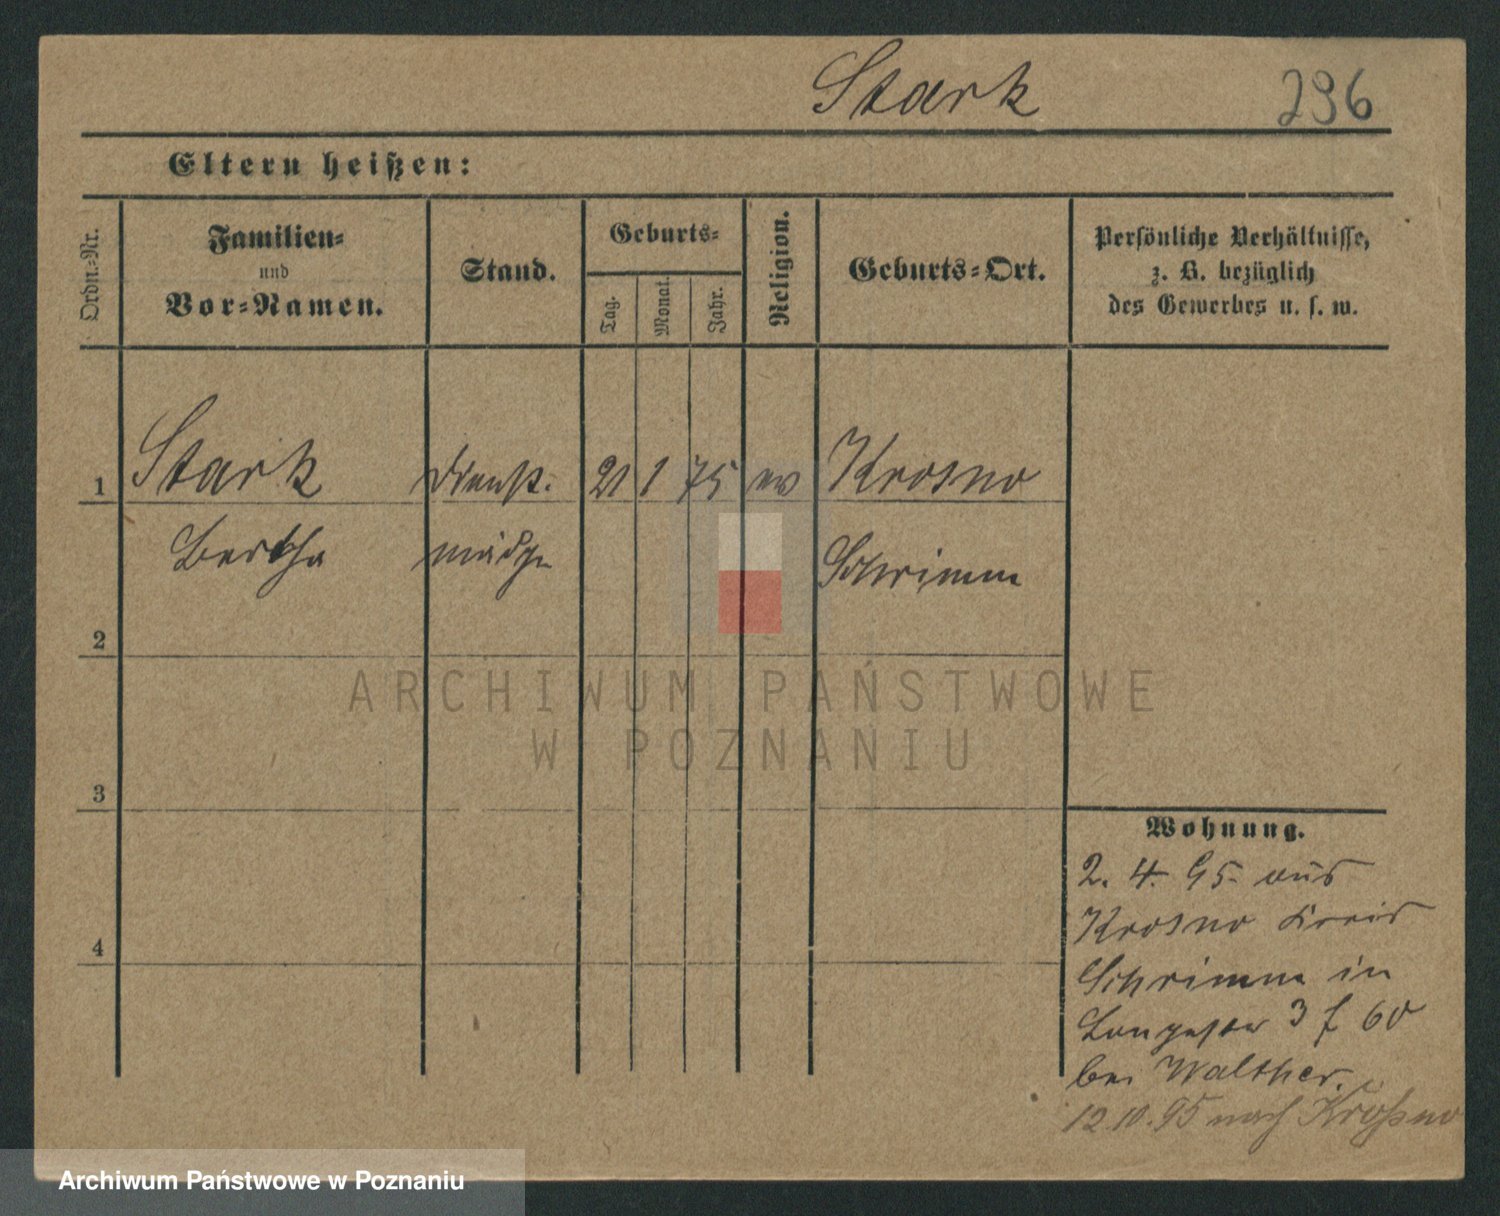 Stark 296
Eltern heißen:
Ordn.-Nr.
Familien-
und
Vor-Namen.
Stand.
Geburts-
Tag.
Monat.
Jahr.
Religion.
Geburts-Ort.
Persönliche Verhältnisse,
z. B. bezüglich
des Gewerbes u. s. w.
1 Stark Dienst- 21 1 75 ev Krosno
Bertha mädchen Schrimm
2
3
4
Wohnung.
2. 4. 95. aus
Krosno Kreis
Schrimm in
Langestr 3
bei Walther.
12.10.95 nach Kroßno
ARCHIWUM PAŃSTWOWE
W POZNANIU
Archiwum Państwowe w Poznaniu